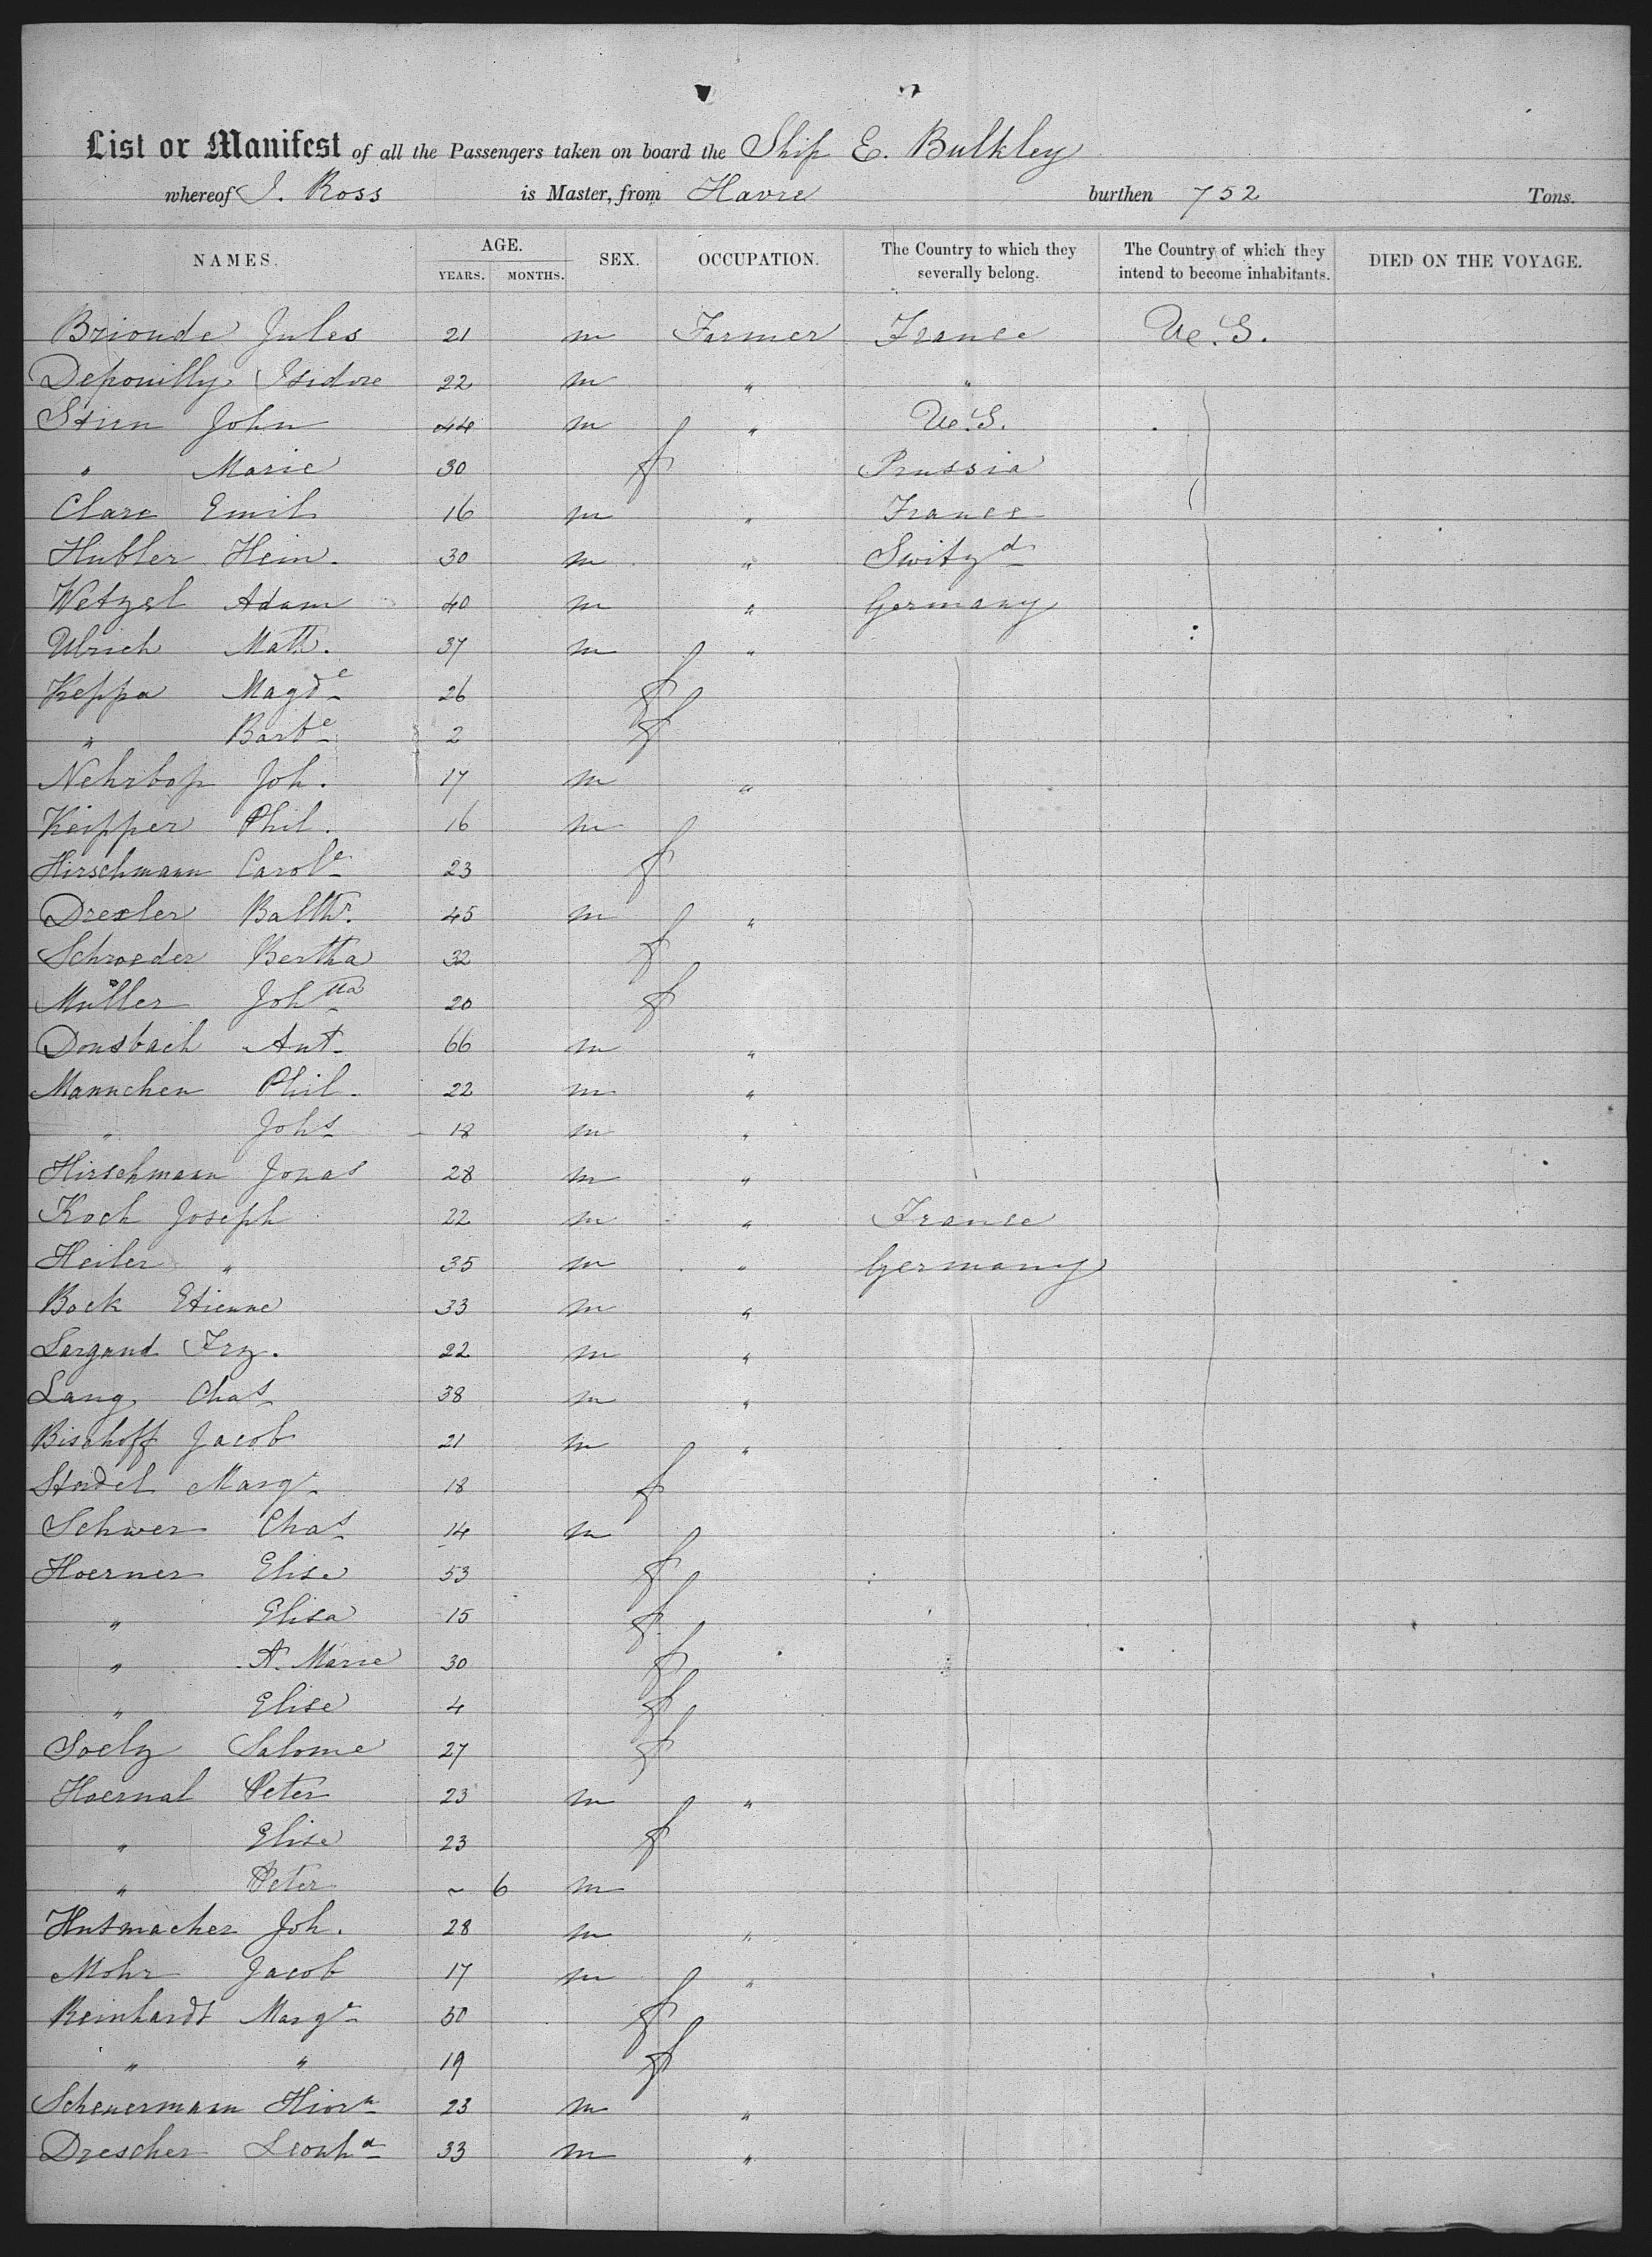 List or Manifest of all the Passengers taken on board the Ship E. Bulkley
whereof J. Ross is Master, from Havre burthen 752 Tons.
NAMES. AGE. YEARS. MONTHS. SEX. OCCUPATION. The Country to which they severally belong. The Country of which they intend to become inhabitants. DIED ON THE VOYAGE.
Brionde Jules 21 m Farmer France U.S.
Depouilly Isidore 22 m " "
Stien John 44 m " U.S.
" Marie 30 f Prussia
Clare Emil 16 m " France
Hubler Hein. 30 m " Switzd
Wetzel Adam 40 m " Germany
Ulrich Matt. 37 m "
Keppa Magde 26 f
" Barbe 2 f
Nehrbop Joh. 17 m "
Keipper Phil. 16 m
Hirschmann Carole 23 f
Drexler Balthr. 45 m "
Schroeder Bertha 32 f
Müller Johnna 20 f
Donsbach Ant. 66 m "
Mannchen Phil. 22 m "
" Johs 18 m "
Hirschmann Jonas 28 m "
Koch Joseph 22 m " France
Heiler " 35 m " Germany
Bock Etienne 33 m "
Largand Frz. 22 m "
Lang Chas 38 m "
Bischoff Jacob 21 m "
Stadel Margt 18 f
Schwer Chas 14 m
Hoerner Elise 53 f
" Elisa 15 f
" A. Marie 30 f
" Elise 4 f
Soelz Salome 27 f
Hoernal Peter 23 m "
" Elise 23 f
" Peter ~ 6 m
Hutmacher Joh. 28 m "
Mohr Jacob 17 m "
Reinhardt Margt 50 f
" " 19 f
Scheuermann 23 m "
Drescher Leonhd 33 m "